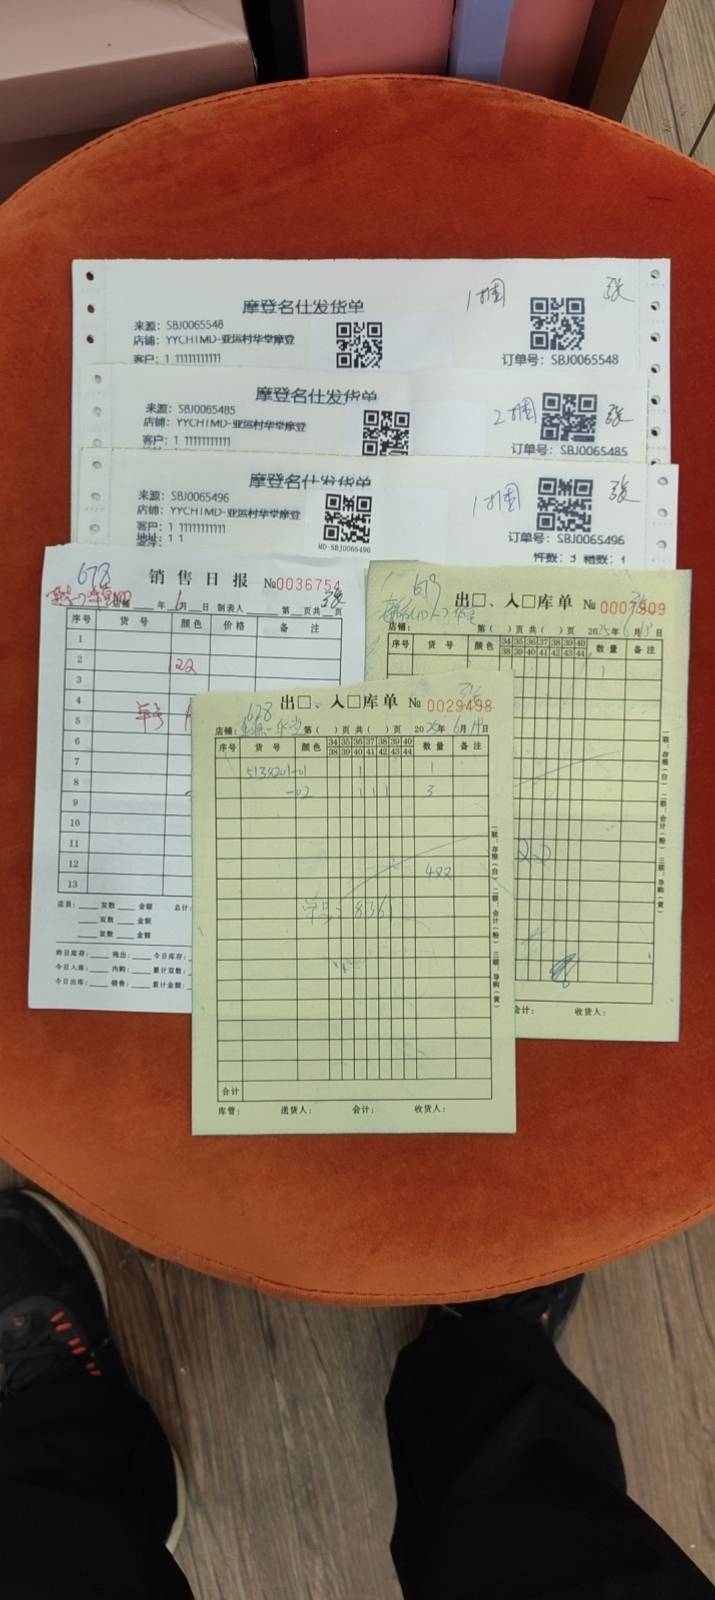 摩登名仕发货单
1捆
张
来源：SBJ0065548
店铺：YYCHTMD-亚运村华堂摩登
客户：1 11111111111
订单号：SBJ0065548
摩登名仕发货单
2捆
张
来源：SBJ0065485
店铺：YYCHTMD-亚运村华堂摩登
客户：1 11111111111
订单号：SBJ0065485
摩登名仕发货单
1捆
张
来源：SBJ0065496
店铺：YYCHTMD-亚运村华堂摩登
客户：1 11111111111
地址：1 1
MD-SBJ0065496
订单号：SBJ0065496
件数：3 箱数：1
678
销售日报 №0036754
张
年 6月 日 制表人 第 页共 页
序号 货号 颜色 价格 备注
1
2 22
3
4
5 单号
6
7
8
9
10
11
12
13
店员： 双数 金额 总计：
双数 金额
双数 金额
昨日库存： 残出： 今日库存：
今日入库： 内购： 累计双数：
今日出库： 销售： 累计金额：
679
出□、入□库单 №
店铺： 第（ ）页共（ ）页 2025年6月 日
序号 货号 颜色 34 35 36 37 38 39 40 数量 备注
38 39 40 41 42 43 44
1
22
一联：存根（白） 二联：会计（粉） 三联：导购（黄）
会计： 收货人：
678
张
出□、入□库单 №0029498
店铺： 第（ ）页共（ ）页 2025年6月19日
序号 货号 颜色 34 35 36 37 38 39 40 数量 备注
38 39 40 41 42 43 44
5138201-01 1 1
-02 1 1 1 3
422
单号：8361
一联：存根（白） 二联：会计（粉） 三联：导购（黄）
合计
库管： 送货人： 会计： 收货人：